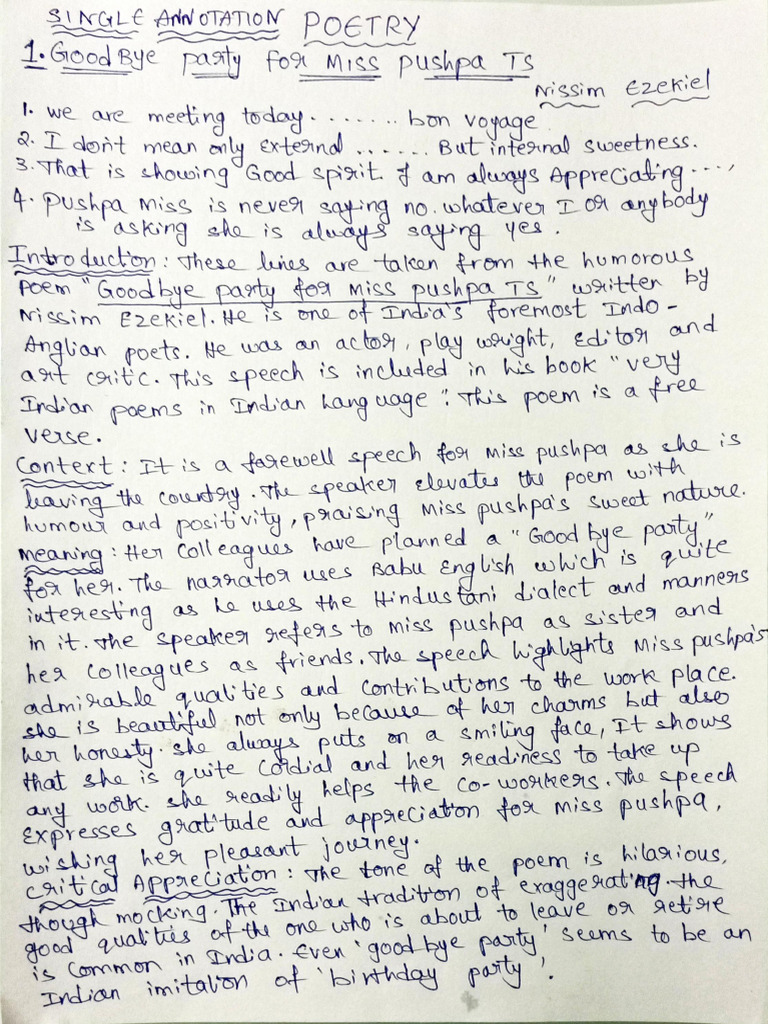 SINGLE ANNOTATION POETRY
1. Good Bye party for Miss pushpa TS
Nissim Ezekiel
1. we are meeting today....... bon voyage
2. I don't mean only external ...... But internal sweetness.
3. That is showing Good spirit. I am always Appreciating....,
4. pushpa Miss is never saying no. whatever I or anybody
is asking she is always saying yes.
Introduction: These lines are taken from the humorous
poem "Goodbye party for Miss pushpa TS" written by
Nissim Ezekiel. He is one of India's foremost Indo-
Anglian poets. He was an actor, play wright, Editor and
art critc. This speech is included in his book "very
Indian poems in Indian Language". This poem is a free
verse.
Context: It is a farewell speech for Miss pushpa as she is
leaving the country. The speaker elevates the poem with
humour and positivity, praising Miss pushpa's sweet nature.
meaning: Her Colleagues have planned a "Good bye party"
for her. The narrator uses Babu English which is quite
interesting as he uses the Hindustani dialect and manners
in it. The speaker refers to miss pushpa as sister and
her colleagues as friends. The speech highlights Miss pushpa's
admirable qualities and contributions to the work place.
she is beautiful not only because of her charms but also
her honesty. she always puts on a smiling face, It shows
that she is quite cordial and her readiness to take up
any work. she readily helps the co-workers. The speech
expresses gratitude and appreciation for miss pushpa,
wishing her pleasant journey.
critical Appreciation: The tone of the poem is hilarious,
though mocking. The Indian tradition of exaggerating the
good qualities of the one who is about to leave or retire
is common in India. Even 'good bye party' seems to be an
Indian imitation of 'birthday party'.